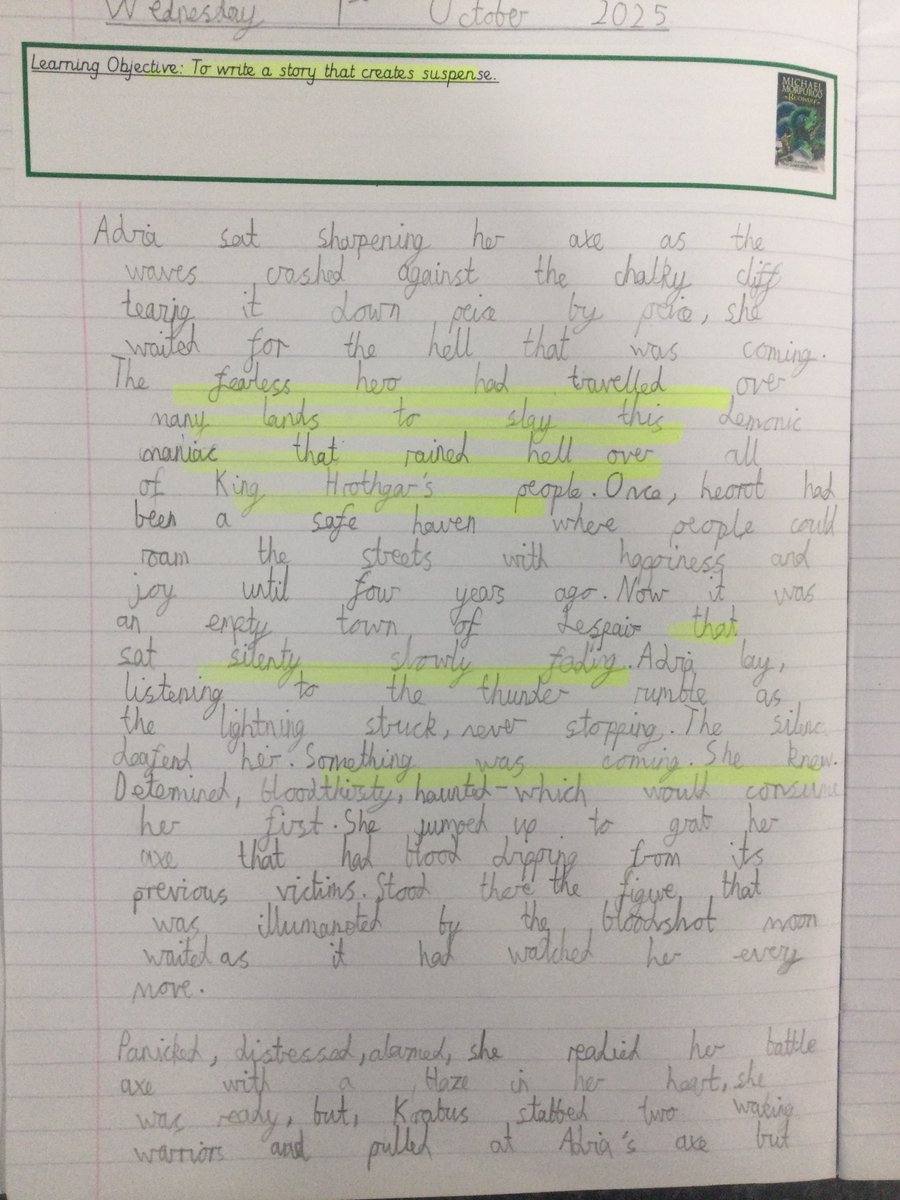 Wednesday 1st October 2025
Learning Objective: To write a story that creates suspense.
MICHAEL
MORPURGO
BEOWULF
Adria sat sharpening her axe as the
waves crashed against the chalky cliff
tearig it down peice by peice, she
waited for the hell that was coming.
The fearless hero had travelled over
many lands to slay this demonic
maniac that rained hell over all
of King Hrothgar's people. Once, heorot had
been a safe haven where people could
roam the streets with happiness and
joy until four years ago. Now it was
an empty town of despair that
sat silenty slowly fading. Adria lay,
listening to the thunder rumble as
the lightning struck, never stopping. The silenc
deafend her. Something was coming. She knew.
Detemined, bloodthirsty, haunted - which would consume
her first. She jumped up to grab her
axe that had blood dripping from its
previous victims. Stood there the figure that
was illumanated by the bloodshot moon
waited as it had watched her every
move.
Panicked, distressed, alarmed, she readied her battle
axe with a Haze in her heart, she
was ready, but, Krabus stabbed two waking
warriors and pulled at Adria's axe but